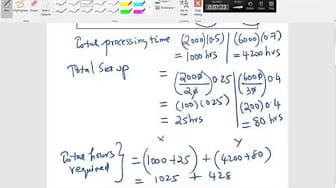 Total processing time (2000)(0.5) | (6000)(0.7)
= 1000 hrs | = 4200 hrs
Total Setup
= (2000/20) 0.25 | (6000/30) 0.4
= (100)(0.25) | (200) 0.4
= 25 hrs | = 80 hrs
X Y
Total hours required } = (1000+25) + (4200+80)
= 1025 + 428